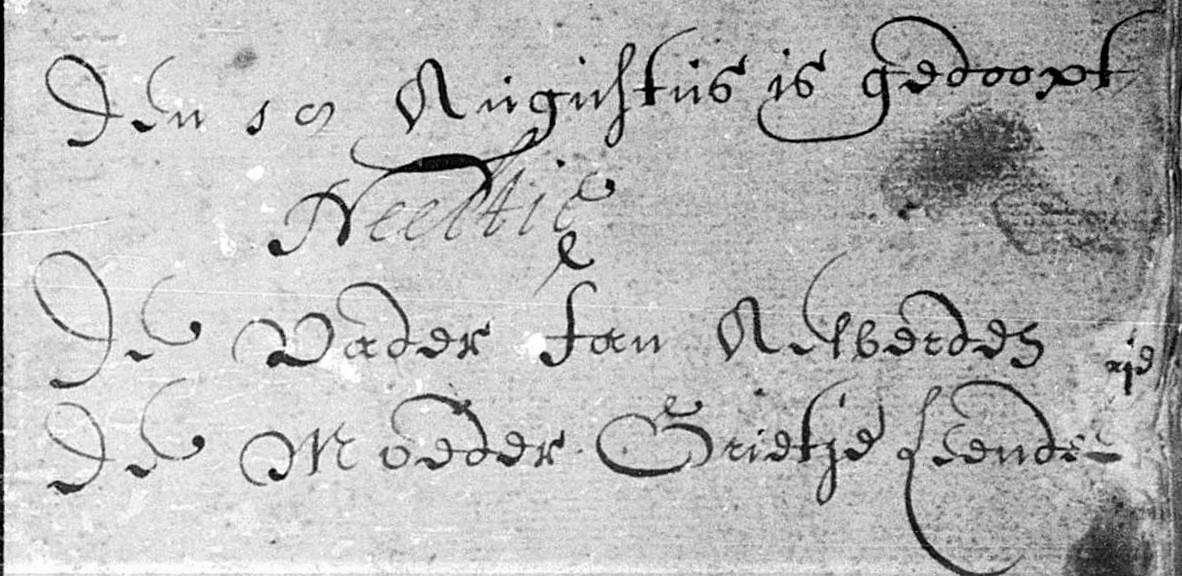 Den 10 Augustus is gedoopt
Neeltie
De Vader Jan Aelberdes
De Moeder Grietje Leende-
rs